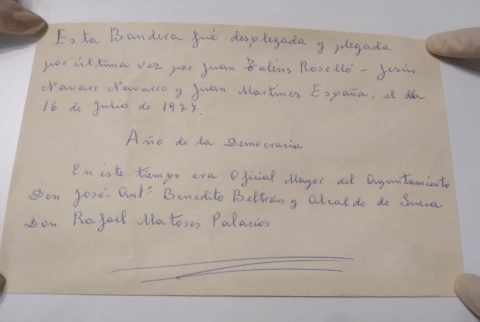 Esta Bandera fué desplegada y plegada
por última vez por Juan Roselló - Jesús
Navarro Navarro y Juan Martinez España, el dia
16 de Julio de 1977.
Año de la Democracia
En este tiempo era Oficial Mayor del Ayuntamiento
Don José Antº Benedito Beltran y Alcalde de Sueca
Don Rafael Matoses Palacios